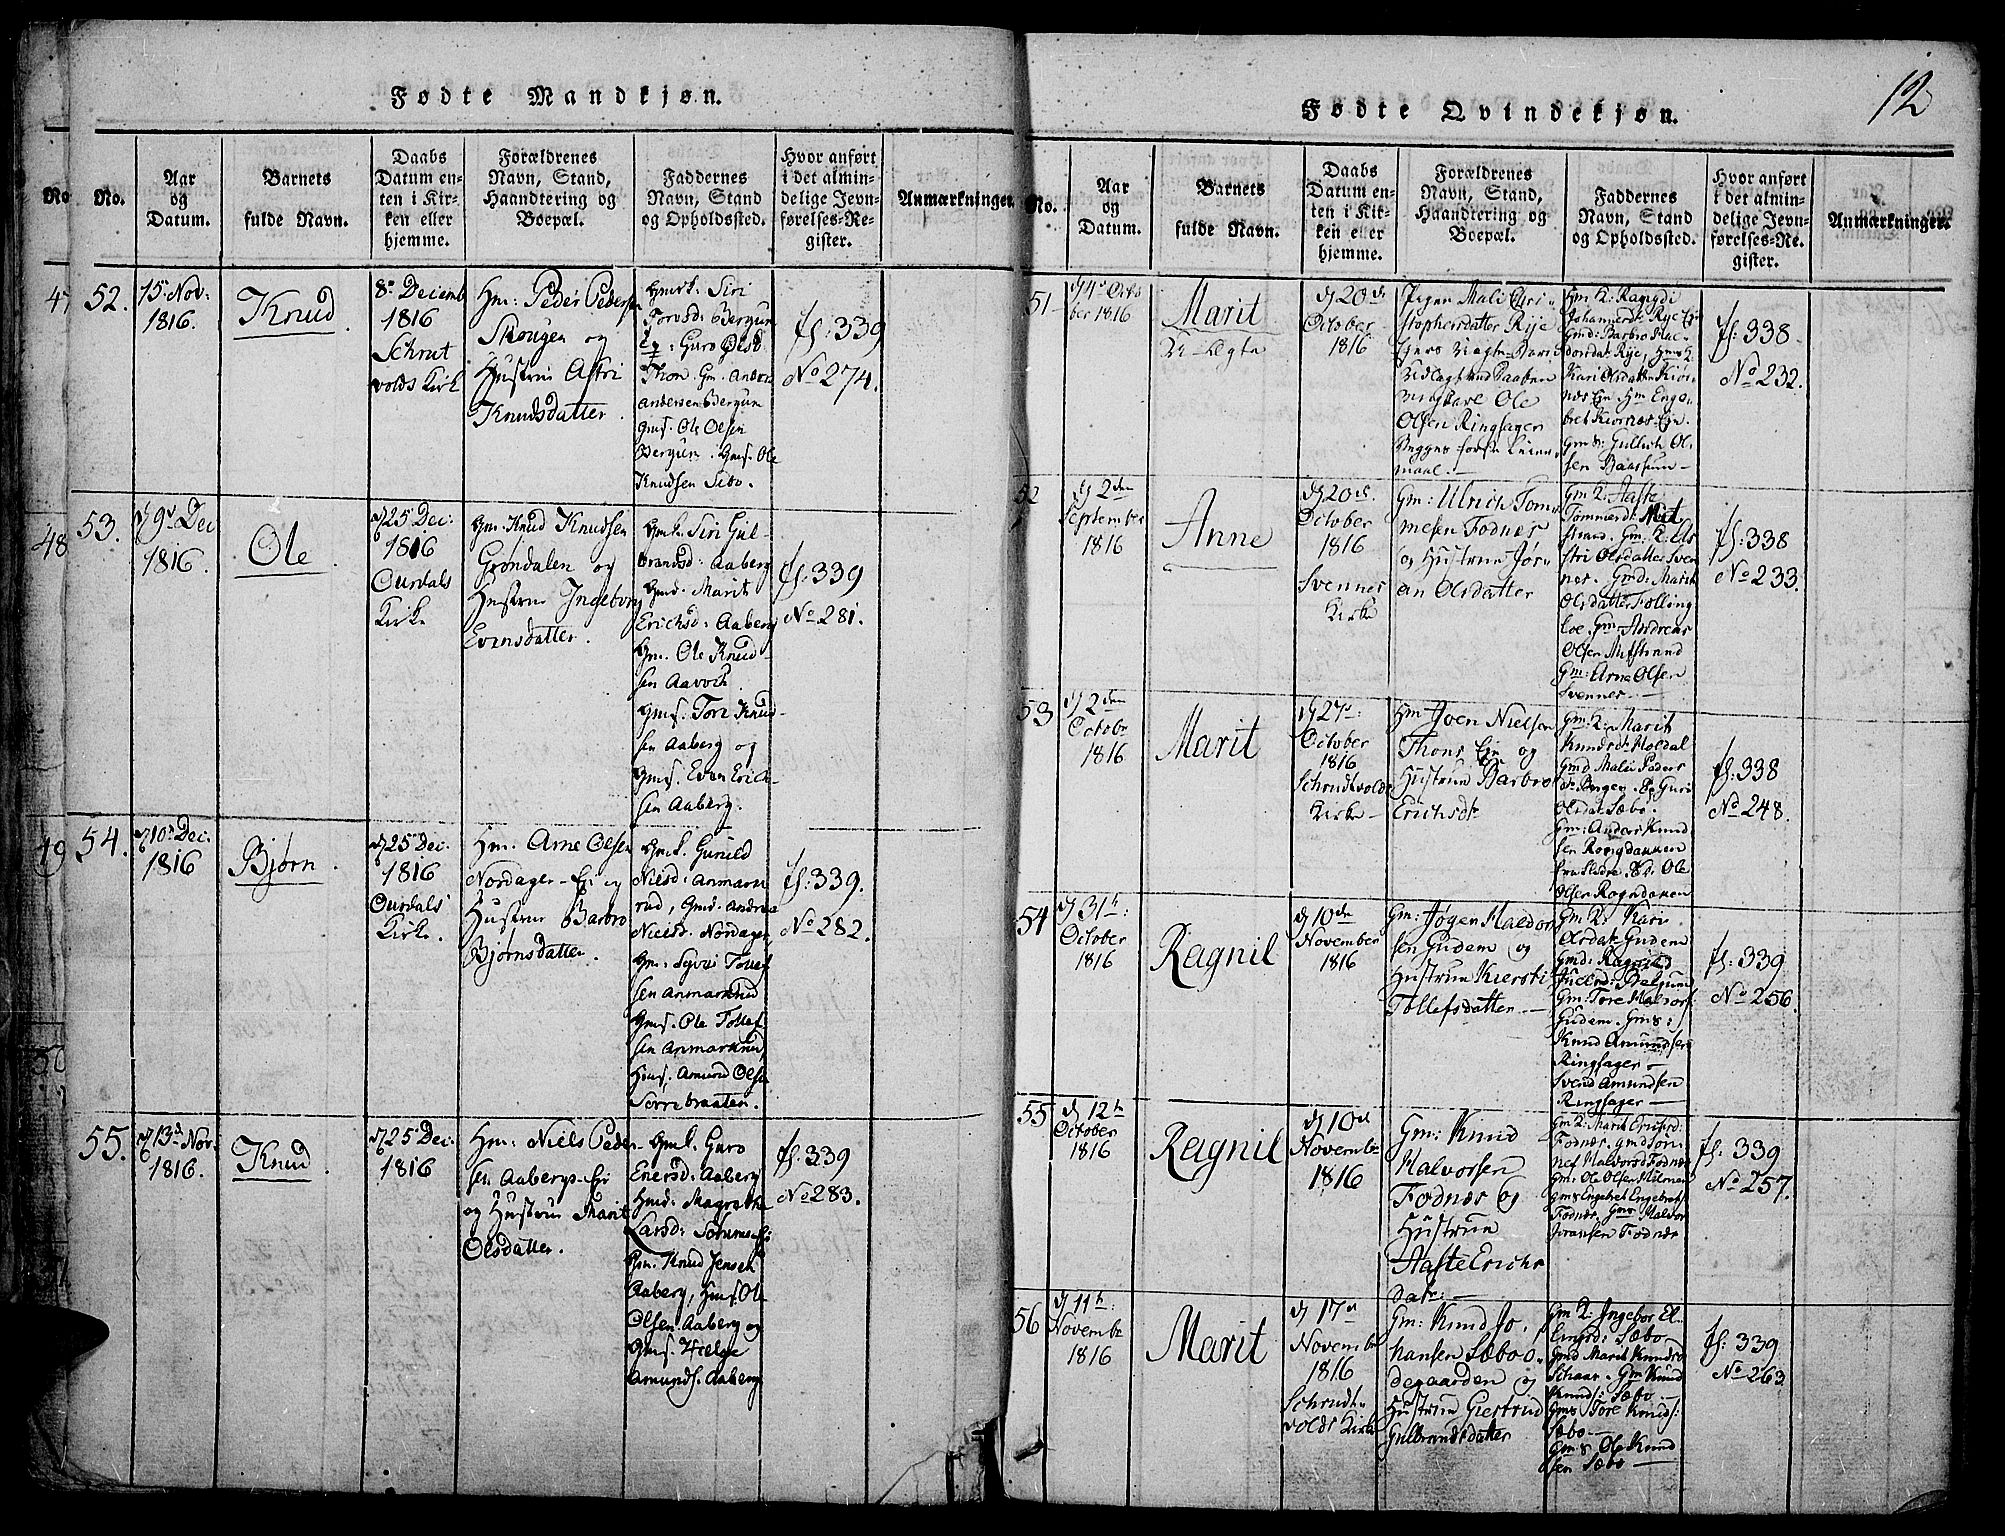 12
Fødte Mandkjøn.
No.
No.
Aar
og
Datum.
Barnets
fulde Navn.
Daabs
Datum en-
ten i Kir-
ken eller
hjemme.
Forældrenes
Navn, Stand,
Haandtering og
Boepæl.
Faddernes
Navn, Stand
og Opholdssted.
Hvor anført
i det almin-
delige Jevn-
førelses-Re-
gister.
Anmærkninger.
47
52.
15 Nov:
1816.
Knud
8 Decemb
1816
Schrut
volds Kirk
Gm: Peder Peders
Skougen og
Hustrue Astri
Knudsdatter.
Gmk. Siri
Torvsd: Bergun
Guro Olsd
Thon. Gm. Andrs
Andersen Bergun
Gms. Ole Olsen
Bergun. Gms. Ole
Knudsen Sibo.
fs: 339
No 274.
48
53.
9 Dec
1816.
Ole
25 Dec:
1816
Ourdals
Kirke
Gm. Knud Knudsen
Grøndalen og
Hustrue Ingeborg
Evensdatter.
Gmk. Siri Gul-
brandsd: Aaberg
Gmd. Marit
Erichsd: Aaberg
Gm. Ole Knud-
sen Aavoch
Gms. Tore Knud-
sen Aaberg og
Gms. Even Erich-
sen Aaberg.
fs: 339
No 281.
49
54.
10 Dec:
1816
Bjørn
25 Dec:
1816
Ourdals
Kirke.
Gm. Arne Olsen
Nordager Ej og
Hustrue Barbro
Bjørnsdatter
Gmk. Gunild
Nielsd: Anmark
rud, Gmd. Andrea
Nielsd: Nordager
Gm: Syver Tollef
sen Anmarkrud
Gms. Ole Tollef
sen Anmarkrud,
Gms. Amund Olsen
Sorrebraaten.
fs: 339.
No 282.
50
55.
13 Nov.
1816.
Knud
25 Dec:
1816
Gm: Niels Peder
sen Aabergs Ej
og Hustrue Marit
Olsdatter.
Gmk. Guro
Enersd: Aaberg
Gmd: Magrethe
Larsd:
Gm. Knud Jensen
Aaberg, Gms. Ole
Olsen Aaberg og
Gms. Helge
Amunds. Aaberg
fs. 339
No 283.
Fødte Qvindekjøn.
No.
Aar
og
Datum.
Barnets
fulde Navn.
Daabs
Datum en-
ten i Kir-
ken eller
hjemme.
Forældrenes
Navn, Stand,
Haandtering og
Boepæl.
Faddernes
Navn, Stand
og Opholdssted.
Hvor anført
i det almin-
delige Jevn-
førelses-Re-
gister.
Anmærkninger.
51
4 Octo
ber 1816
Marit
U-Ægte
20 d
October
1816
Pigen Mali Chri-
stophersdatter Rye
Ejers Uægte Barn
Udlagt til Barnefa
Ungkarl Ole
Olsen Ringsager
Begges første Leier-
maal.
Gm K: Rangdi
Johannesd: Rye Ejn
Gmd: Barbro Hal-
dorsdat: Rye, Gm K.
Kari Olsdatter Kiør-
næs Ejn Gm Enge-
bret Kiørnæs Ejn.
Gms: Gullich Ol-
sen Baassum
fs: 338
No 232.
52
2den
September
1816
Anne
20 d.
October
1816
Svennes
Kirke
Gm: Ulrich Tom-
mesen Fodnes
og Hustrue Jør-
an Olsdatter
Gm K. Aaste
Tommesd:
strand. Gm. K.
Olsdatter Sven
nes. Gmd: Marit
Olsdatter Følling
loe. Gm. Andreas
Olsen Misstrand
Gm: Arne Olsen
Svennes
fs: 338
No 233.
53
2den
October
1816
Marit
27
October
1816
Schrudtvolds
Kirke
Gm Joen Nielsen
Thons Ejn og
Hustrue Barbro
Erichsdt
Gm: K. Marit
Knudsdt: Høedal
Gmd Mali Peders
dt. Bergen. Guri
Olsdat: Sæbo.
Gm: Anders Knud
sen Rongdannen
fra Slidre. Ole
Olsen Rogndannen
fs: 338
No 248.
54
31
October
1816
Ragnil
10de
November
1816
Gm: Jøgen Haldor
sen Gudem og
Hustrue Kiersti
Tollefsdatter
Gm K: Kari
Olsdat: Gudem
Gmd: Ragnild
Juelsd: Belgum
Gm: Tore Halvors
Gudem. Gms:
Knud Amundsen
Ringsager
Svend Amundsen
Ringsager
fs: 339
No 256.
55
12
October
1816
Ragnil
10 d
November
1816
Gm: Knud
Halvorsen
Fodnes og
Hustrue
Aaste Erichs
datr:
Gm K: Marit Erichsd:
Fodnæs. Gmd
Halvorsd Fodnæs
Gm: Ole Olsen Hilmen
Gms Engebret Engebrets
Fodnæs. Gms Halvor
Joransen Fodnær
fs: 339
No 257.
56
11
Novembr
1816
Marit
17
November
1816
Schrudt-
volds Kirke
Gm: Knud Jo-
hansen Sæbo o-
degaarden og
Hustrue Giertrud
Gulbrandsdatter
Gm K: Ingebor El-
Sæbo
Gmd Marit Knudsd
Schaar. Gm Knud
Knuds: Sæbo
Gms Tore Knuds:
Sæbo
Gms Ole Knud
sen Sæbo
fs: 339
No 263.